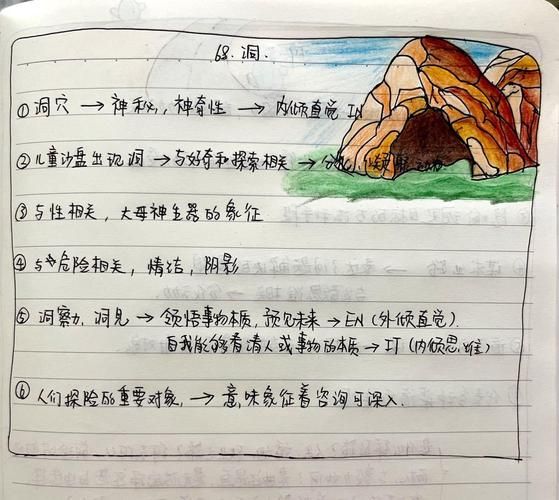 68. 洞.
① 洞穴 → 神秘, 神奇性 → 内倾直觉 IN
② 儿童沙盘出现洞 → 与好奇和探索相关 →
③ 与性相关, 大母神生器的象征
④ 与危险相关, 情结, 阴影
⑤ 洞察力, 洞见 → 领悟事物本质, 预见未来 → EN (外倾直觉).
自我能够看清人或事物的本质 → IT (内倾思维)
⑥ 人们探险的重要对象, → 意味象征着咨询可深入.